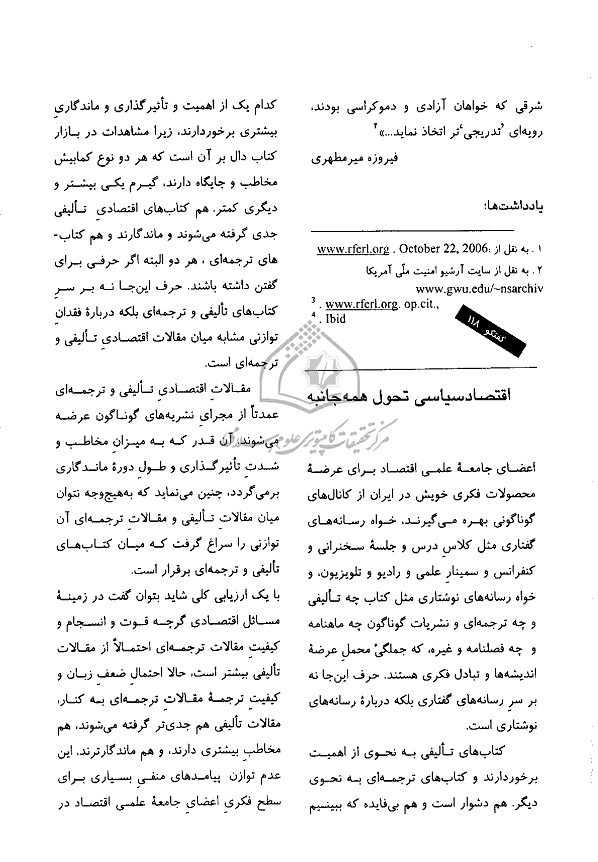 شرقی که خواهان آزادی و دموکراسی بودند،
رویه‌ای 'تدریجی'تر اتخاذ نماید...»⁴
فیروزه میرمطهری
یادداشت‌ها:
۱ . به نقل از: www.rferl.org . October 22, 2006
۲ . به نقل از سایت آرشیو امنیت ملّی آمریکا
www.gwu.edu/~nsarchiv
³ . www.rferl.org. op.cit.,
⁴ . Ibid
گفتگو ۱۱۸
اقتصاد سیاسی تحول همه‌جانبه
اعضای جامعهٔ علمی اقتصاد برای عرضهٔ
محصولات فکری خویش در ایران از کانال‌های
گوناگونی بهره می‌گیرند، خواه رسانه‌های
گفتاری مثل کلاسِ درس و جلسهٔ سخنرانی و
کنفرانس و سمینارِ علمی و رادیو و تلویزیون، و
خواه رسانه‌های نوشتاری مثل کتاب چه تألیفی
و چه ترجمه‌ای و نشریات گوناگون چه ماهنامه
و چه فصلنامه و غیره، که جملگیْ محملِ عرضهٔ
اندیشه‌ها و تبادل فکری هستند. حرف این‌جا نه
بر سرِ رسانه‌های گفتاری بلکه دربارهٔ رسانه‌های
نوشتاری است.
کتاب‌های تألیفی به نحوی از اهمیت
برخوردارند و کتاب‌های ترجمه‌ای به نحوی
دیگر. هم دشوار است و هم بی‌فایده که ببینیم
کدام یک از اهمیت و تأثیرگذاری و ماندگاریِ
بیشتری برخوردارند، زیرا مشاهدات در بازار
کتاب دال بر آن است که هر دو نوع کمابیش
مخاطب و جایگاه دارند، گیرم یکی بیشتر و
دیگری کمتر. هم کتاب‌های اقتصادیِ تألیفی
جدی گرفته می‌شوند و ماندگارند و هم کتاب-
های ترجمه‌ای ، هر دو البته اگر حرفی برای
گفتن داشته باشند. حرف این‌جا نه بر سرِ
کتاب‌های تألیفی و ترجمه‌ای بلکه دربارهٔ فقدانِ
توازنی مشابه میان مقالات اقتصادیِ تألیفی و
ترجمه‌ای است.
مقالاتِ اقتصادیِ تألیفی و ترجمه‌ای
عمدتاً از مجرایِ نشریه‌های گوناگون عرضه
می‌شوند. آن قدر که به میزانِ مخاطب و
شدتِ تأثیرگذاری و طولِ دورهٔ ماندگاری
برمی‌گردد، چنین می‌نماید که به‌هیچ‌وجه نتوان
میان مقالاتِ تألیفی و مقالاتِ ترجمه‌ای آن
توازنی را سراغ گرفت که میان کتاب‌های
تألیفی و ترجمه‌ای برقرار است.
با یک ارزیابی کلی شاید بتوان گفت در زمینهٔ
مسائل اقتصادی گرچه قوت و انسجام و
کیفیتِ مقالات ترجمه‌ای احتمالاً از مقالات
تألیفی بیشتر است، حالا احتمال ضعفِ زبان و
کیفیتِ ترجمهٔ مقالاتِ ترجمه‌ای به کنار،
مقالات تألیفی هم جدی‌تر گرفته می‌شوند، هم
مخاطبِ بیشتری دارند، و هم ماندگارترند. این
عدم توازن پیامدهای منفیِ بسیاری برای
سطح فکریِ اعضایِ جامعهٔ علمی اقتصاد در